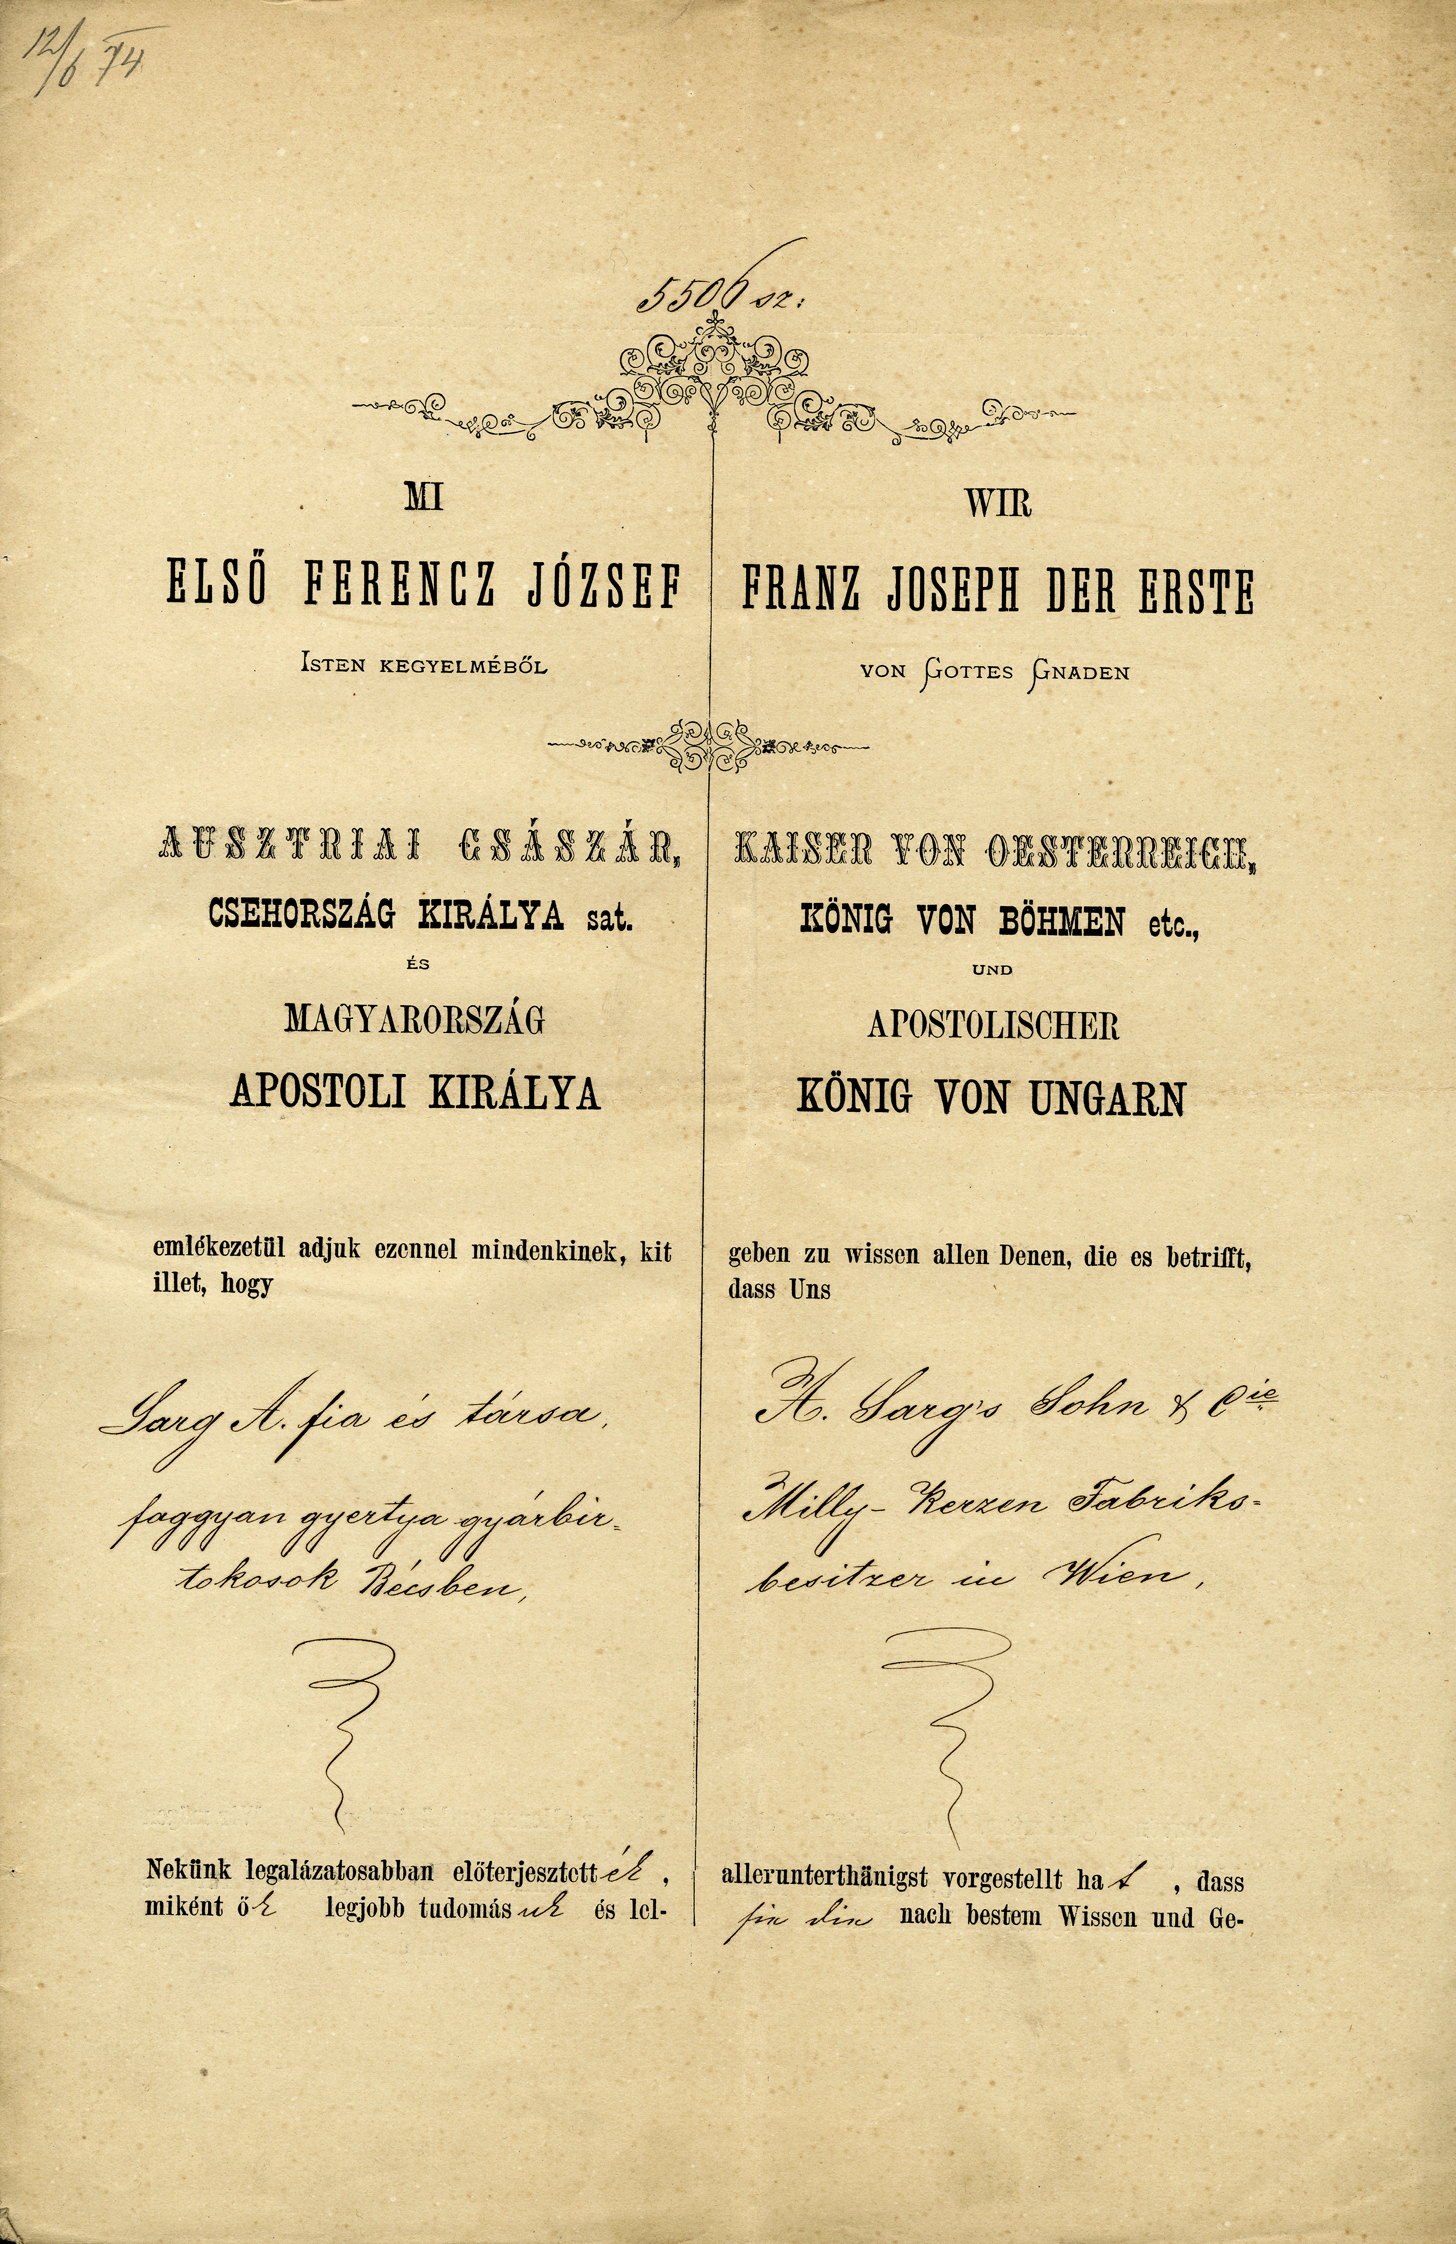 12/6 74
5506 sz:
MI
ELSŐ FERENCZ JÓZSEF
ISTEN KEGYELMÉBŐL
AUSZTRIAI CSÁSZÁR,
CSEHORSZÁG KIRÁLYA sat.
ÉS
MAGYARORSZÁG
APOSTOLI KIRÁLYA
emlékezetül adjuk ezennel mindenkinek, kit
illet, hogy
Sarg A. fia és társa,
faggyan gyertya gyárbir=
tokosok Bécsben,
Nekünk legalázatosabban előterjesztették,
miként ők legjobb tudomásuk és lel-
WIR
FRANZ JOSEPH DER ERSTE
VON GOTTES GNADEN
KAISER VON OESTERREICH,
KÖNIG VON BÖHMEN etc.,
UND
APOSTOLISCHER
KÖNIG VON UNGARN
geben zu wissen allen Denen, die es betrifft,
dass Uns
A. Sarg's Sohn & Cie
Milly-Kerzen Fabriks=
besitzer in Wien,
allerunterthänigst vorgestellt hat, dass
sie die nach bestem Wissen und Ge-